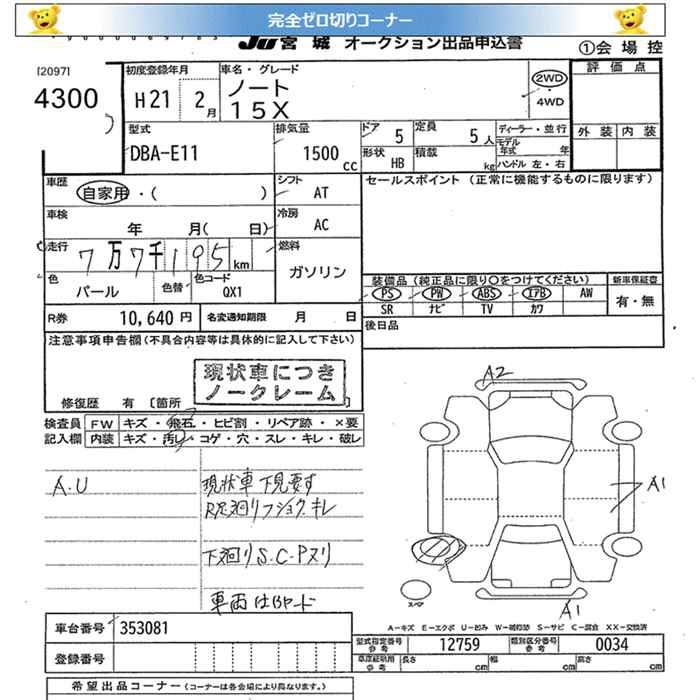 完全ゼロ切りコーナー
JU宮城 オークション出品申込書
①会場控
[2097]
4300
初度登録年月
H21 2月
車名・グレード
ノート
15X
2WD
・
4WD
評価点
外装 内装
型式
DBA-E11
排気量
1500cc
ドア 5
定員 5人
形状 HB
積載 kg
ディーラー・並行
モデル年式 年
ハンドル 左・右
車歴
自家用・( )
シフト
AT
セールスポイント (正常に機能するものに限ります)
車検
年 月( 日)
冷房
AC
走行
7万7千195km
燃料
ガソリン
色
パール
色替
色コード
QX1
装備品(純正品に限り○をつけてください)
新車保証書
PS PW ABS エアB AW
有・無
SR ナビ TV カワ
R券 10,640円
名変通知期限 月 日
後日品
注意事項申告欄(不具合内容等は具体的に記入して下さい)
現状車につき
ノークレーム
修復歴 有 [箇所 ]
検査員 FW キズ・飛石・ヒビ割・リペア跡・×要
記入欄 内装 キズ・汚し・コゲ・穴・スレ・キレ・破レ
A.U
現状車 下見要す
R足廻りフショク.キレ
下廻りS.C.Pヌリ
A2
A1
A1
スペア
A-キズ E-エクボ U-凹み W-補修跡 S-サビ C-腐食 XX-交換済
車台番号 353081
型式指定番号 参考 12759
類別区分番号 参考 0034
登録番号
参考 長さ cm 幅 cm 高さ cm
希望出品コーナー(コーナーは各会場により異なります。)